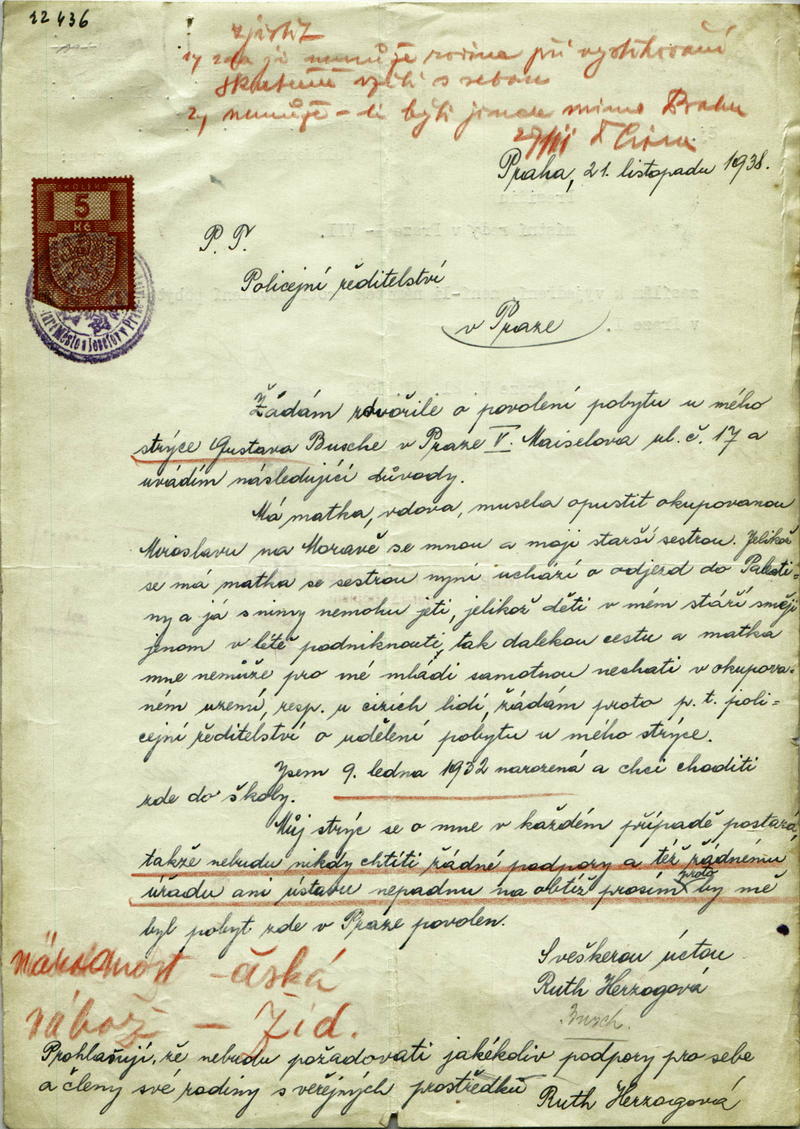 22436
zjistit
1) zda ji nemůže rodina při vystěhování
skutečně vzíti s sebou
2) nemůže-li býti jinde mimo Prahu
Praha, 21. listopadu 1938.
KOLEK
5
Kč
P. T.
Policejní ředitelství
v Praze
Žádám zdvořile o povolení pobytu u mého
strýce Gustava Busche v Praze V. Maiselova ul. č. 17 a
uvádím následující důvody.
Má matka, vdova, musela opustit okupovanou
Miroslavu na Moravě se mnou a moji starší sestrou. Jelikož
se má matka se sestrou nyní uchází o odjezd do Palesti-
ny a já s nimy nemohu jeti, jelikož děti v mém stáří smějí
jenom v létě podniknouti, tak dalekou cestu a matka
mne nemůže pro mé mládí samotnou nechati v okupova-
ném uzemí, resp. u cizích lidí, žádám proto p. t. poli-
cejní ředitelství o udělení pobytu u mého strýce.
Jsem 9. ledna 1932 narozená a chci choditi
zde do školy.
Můj strýc se o mne v každém případě postará,
takže nebudu nikdy chtíti žádné podpory a též žádnému
úřadu ani ústavu nepadnu na obtíž prosím proto by mě
byl pobyt zde v Praze povolen.
S veškerou úctou
Ruth Herzogová
Busch.
národnost - česká
nábož - Žid.
Prohlašuji, že nebudu požadovati jakékoliv podpory pro sebe
a členy své rodiny s veřejných prostředků
Ruth Herzogová